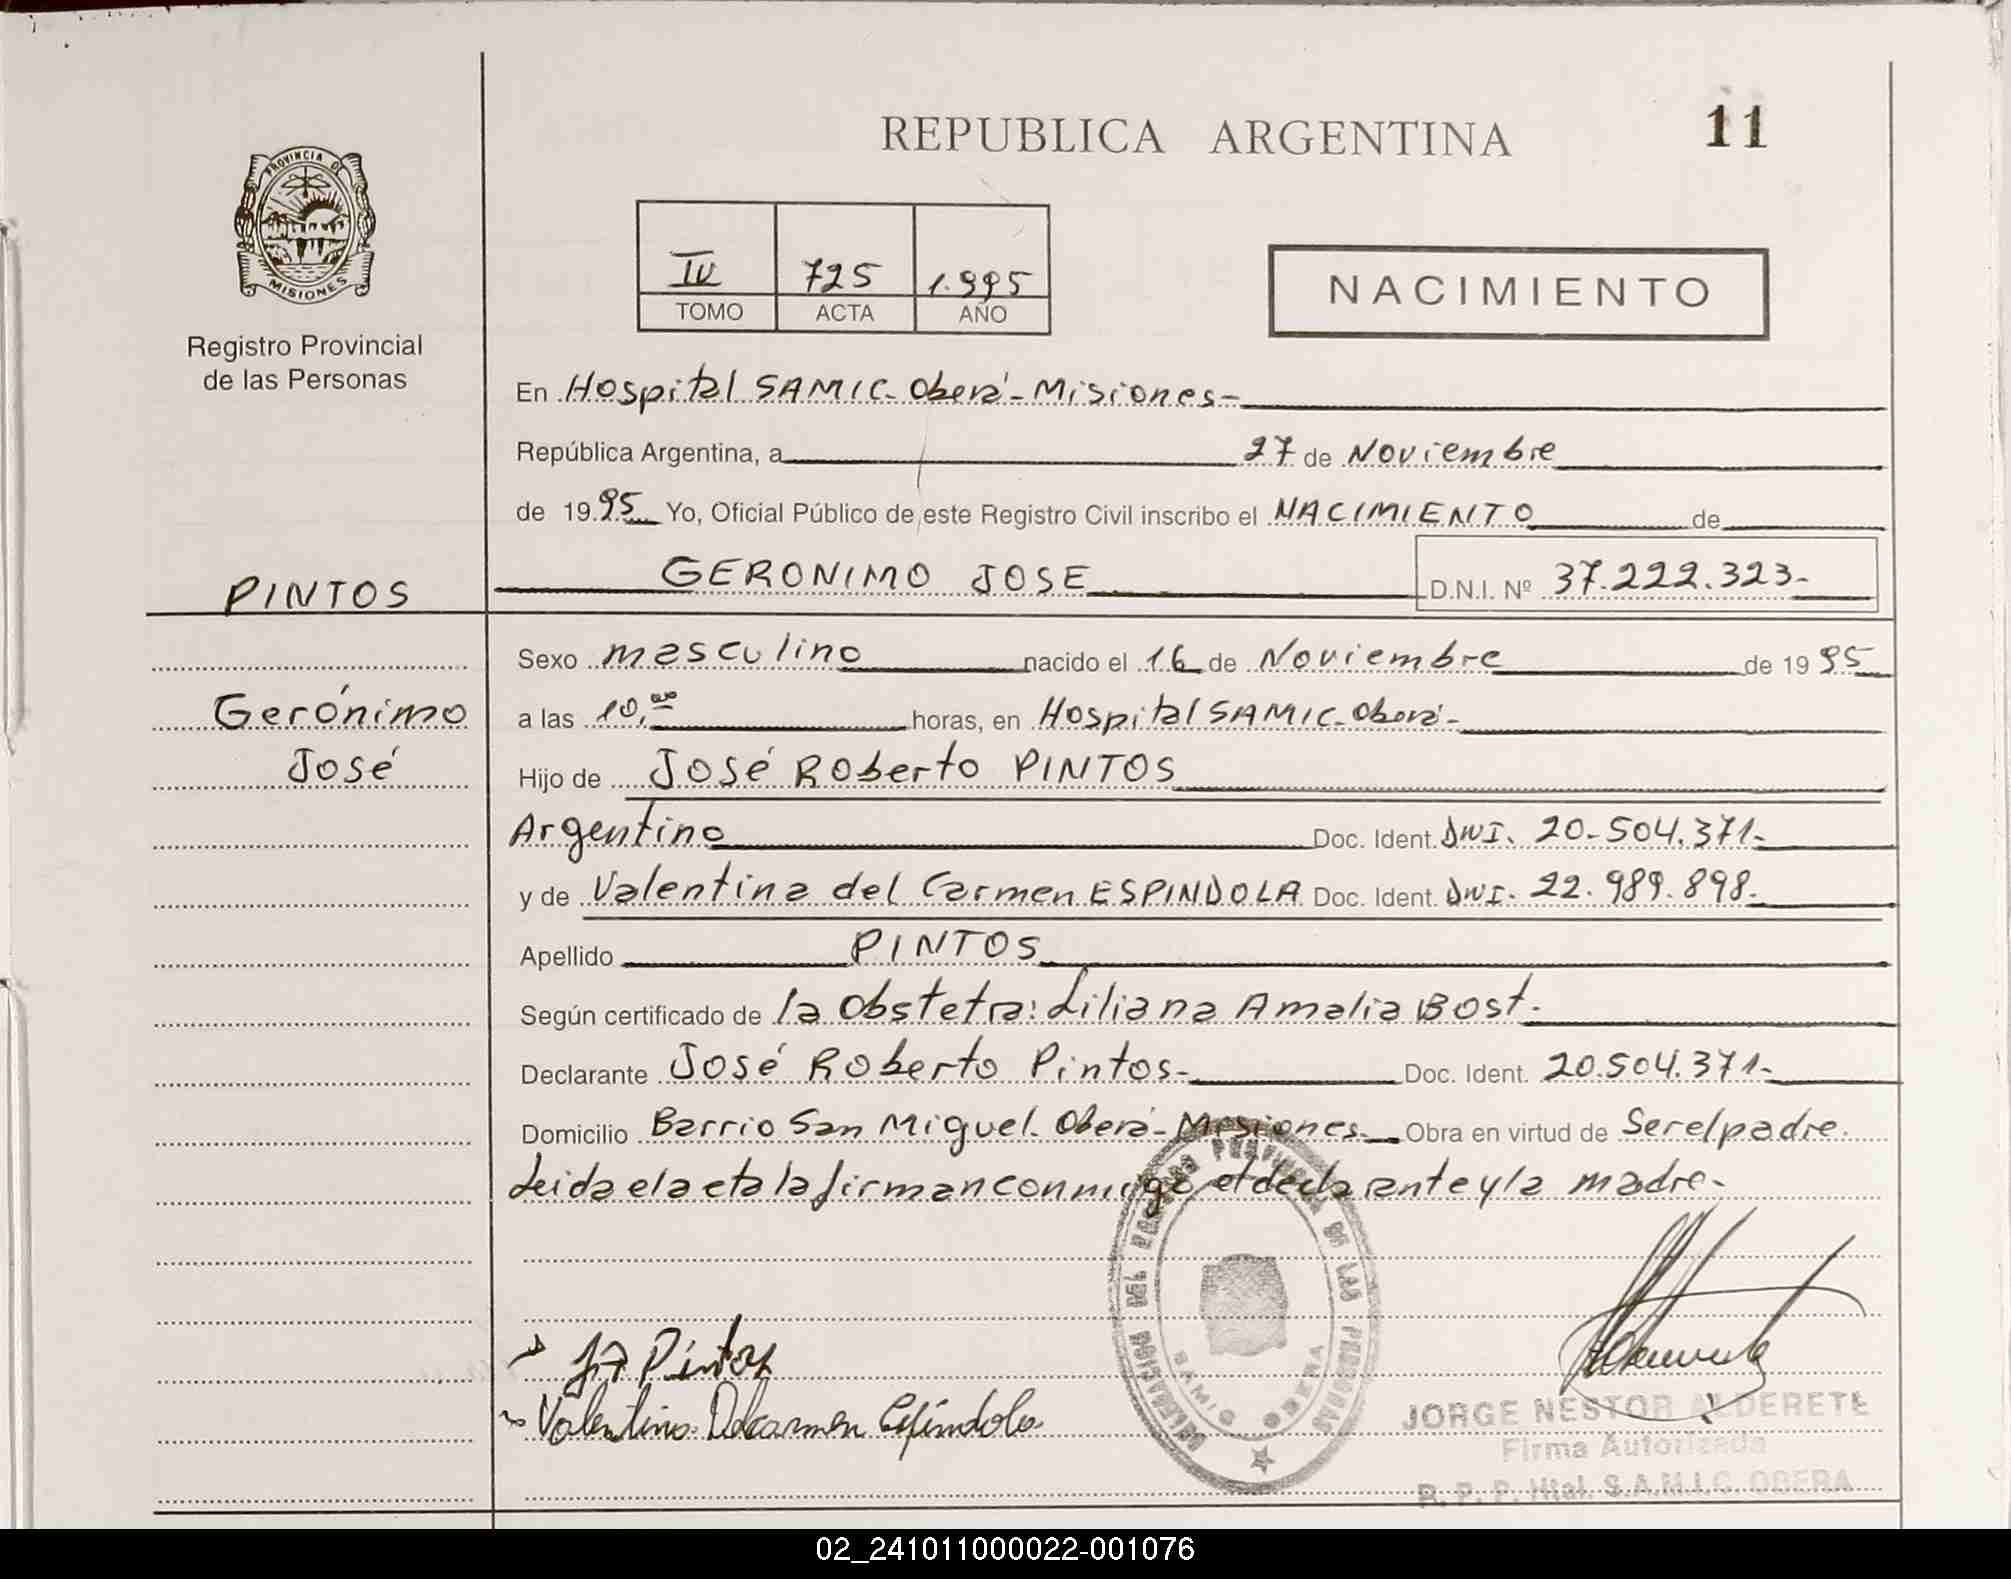 REPUBLICA ARGENTINA
11
PROVINCIA DE
MISIONES
Registro Provincial
de las Personas
IV 725 1.995
TOMO ACTA AÑO
NACIMIENTO
En Hospital SAMIC - Oberá - Misiones -
República Argentina, a 27 de Noviembre
de 1995 Yo, Oficial Público de este Registro Civil inscribo el NACIMIENTO de
PINTOS
GERONIMO JOSE D.N.I. Nº 37.222.323-
Sexo masculino nacido el 16 de Noviembre de 1995
Gerónimo
José
a las 10,00 horas, en Hospital SAMIC - Oberá -
Hijo de José Roberto PINTOS
Argentino Doc. Ident. DNI. 20-504.371-
y de Valentina del Carmen ESPINDOLA Doc. Ident. DNI. 22.989.898.
Apellido PINTOS
Según certificado de la Obstetra: Liliana Amalia Bost.
Declarante José Roberto Pintos- Doc. Ident. 20.504.371-
Domicilio Barrio San Miguel - Oberá - Misiones- Obra en virtud de Ser el padre.
Leida el acta la firman conmigo el declarante y la madre-
JR Pintos
Valentina Delcarmen Espíndola
DELEGACION DEL REGISTRO PROVINCIAL DE LAS PERSONAS
SAMIC OBERA
JORGE NESTOR ALDERETE
Firma Autorizada
R. P. P. Htal. S.A.M.I.C. OBERA
02_241011000022-001076